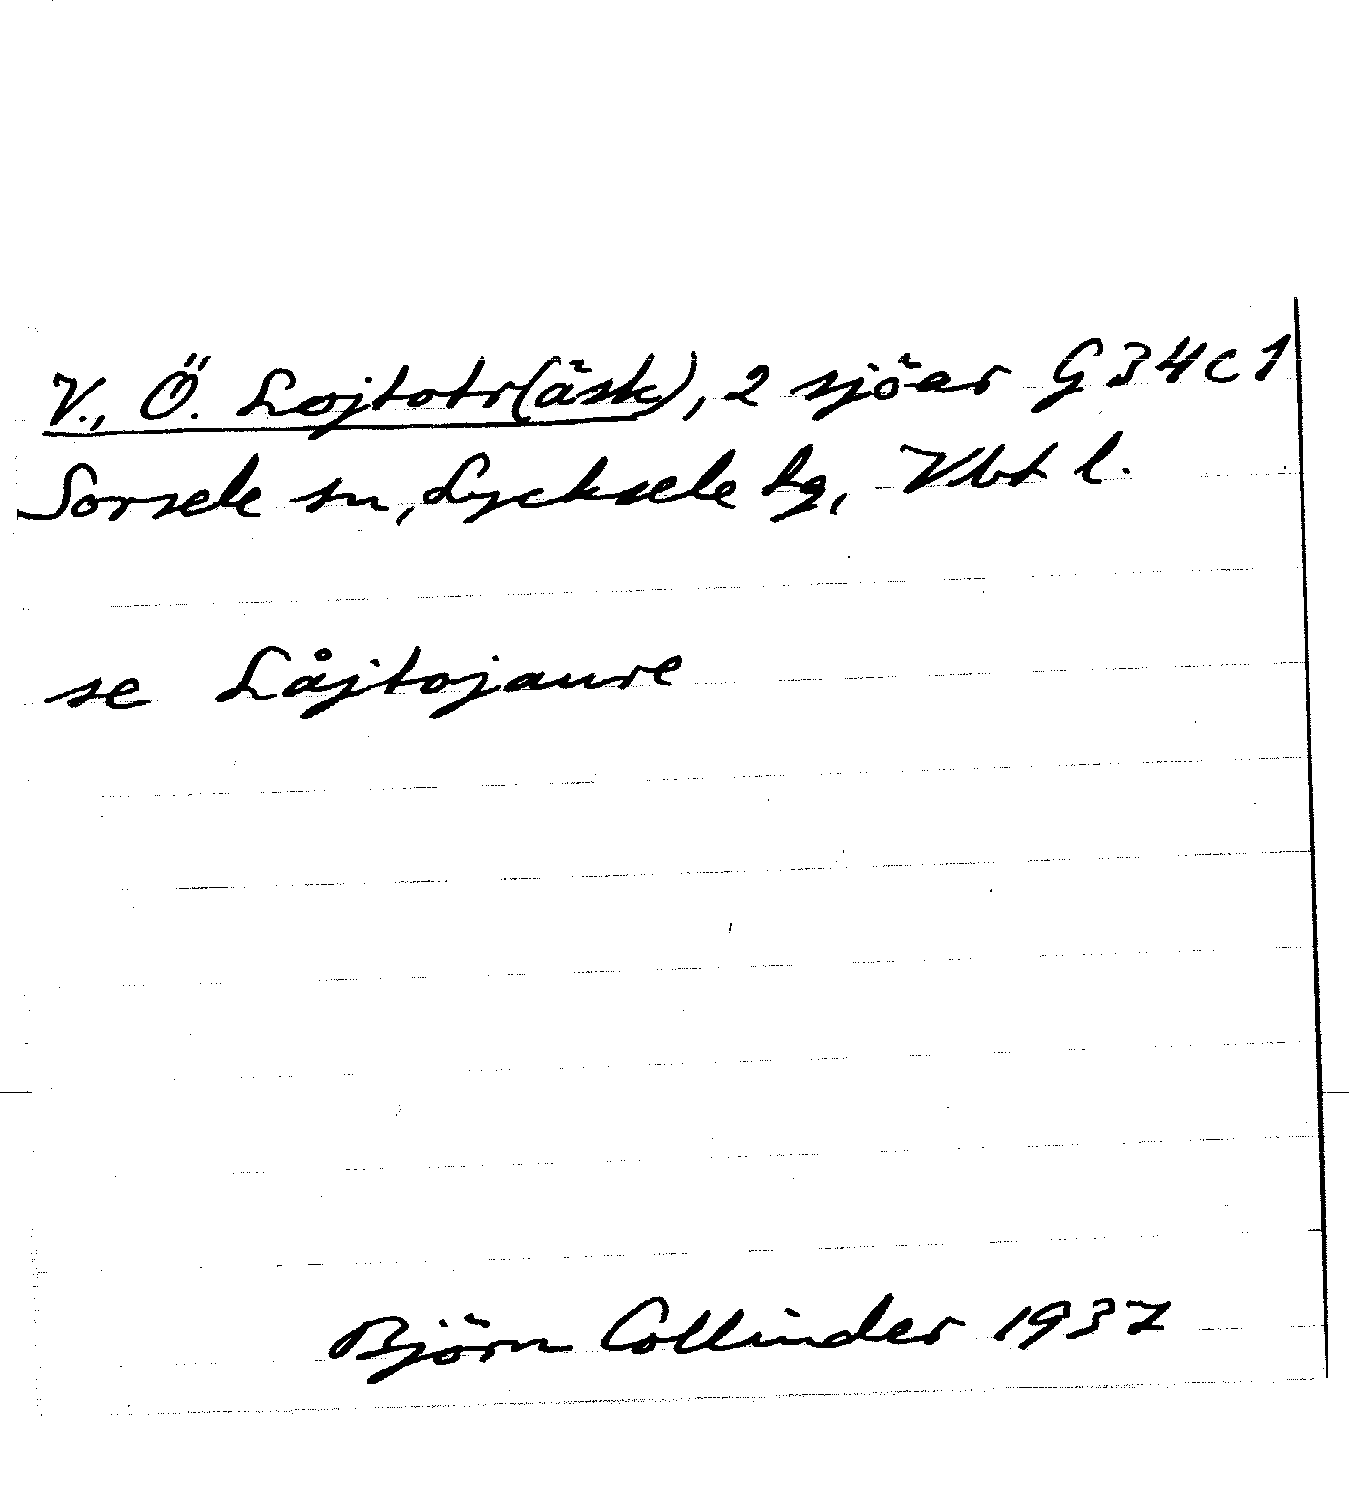 V., Ö. Lojtotr(äsk), 2 sjöar G 34 c 1
Sorsele sn, Lycksele lg, Vbt l.
se Låjtojaure
Björn Collinder 1937